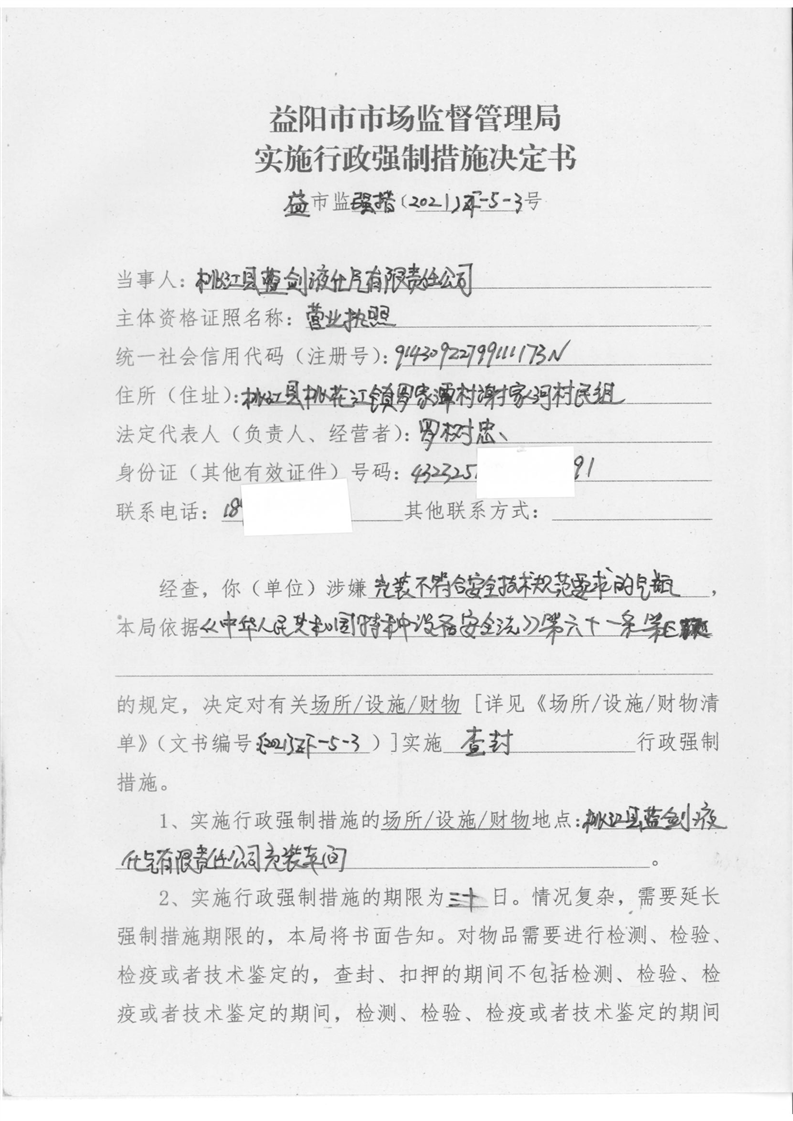 益阳市市场监督管理局
实施行政强制措施决定书
益市监强措(2021)环-5-3号
当事人：桃江县蓝剑液化气有限责任公司
主体资格证照名称：营业执照
统一社会信用代码（注册号）：91430922799111173N
住所（住址）：桃江县桃花江镇罗家潭村谢家河村民组
法定代表人（负责人、经营者）：罗树忠
身份证（其他有效证件）号码：432325 91
联系电话：18 其他联系方式：
经查，你（单位）涉嫌充装不符合安全技术规范要求的气瓶，
本局依据《中华人民共和国特种设备安全法》第六十一条第
的规定，决定对有关场所/设施/财物［详见《场所/设施/财物清
单》（文书编号(2021)环-5-3）］实施 查封 行政强制
措施。
1、实施行政强制措施的场所/设施/财物地点：桃江县蓝剑液
化气有限责任公司充装车间。
2、实施行政强制措施的期限为三十日。情况复杂，需要延长
强制措施期限的，本局将书面告知。对物品需要进行检测、检验、
检疫或者技术鉴定的，查封、扣押的期间不包括检测、检验、检
疫或者技术鉴定的期间，检测、检验、检疫或者技术鉴定的期间